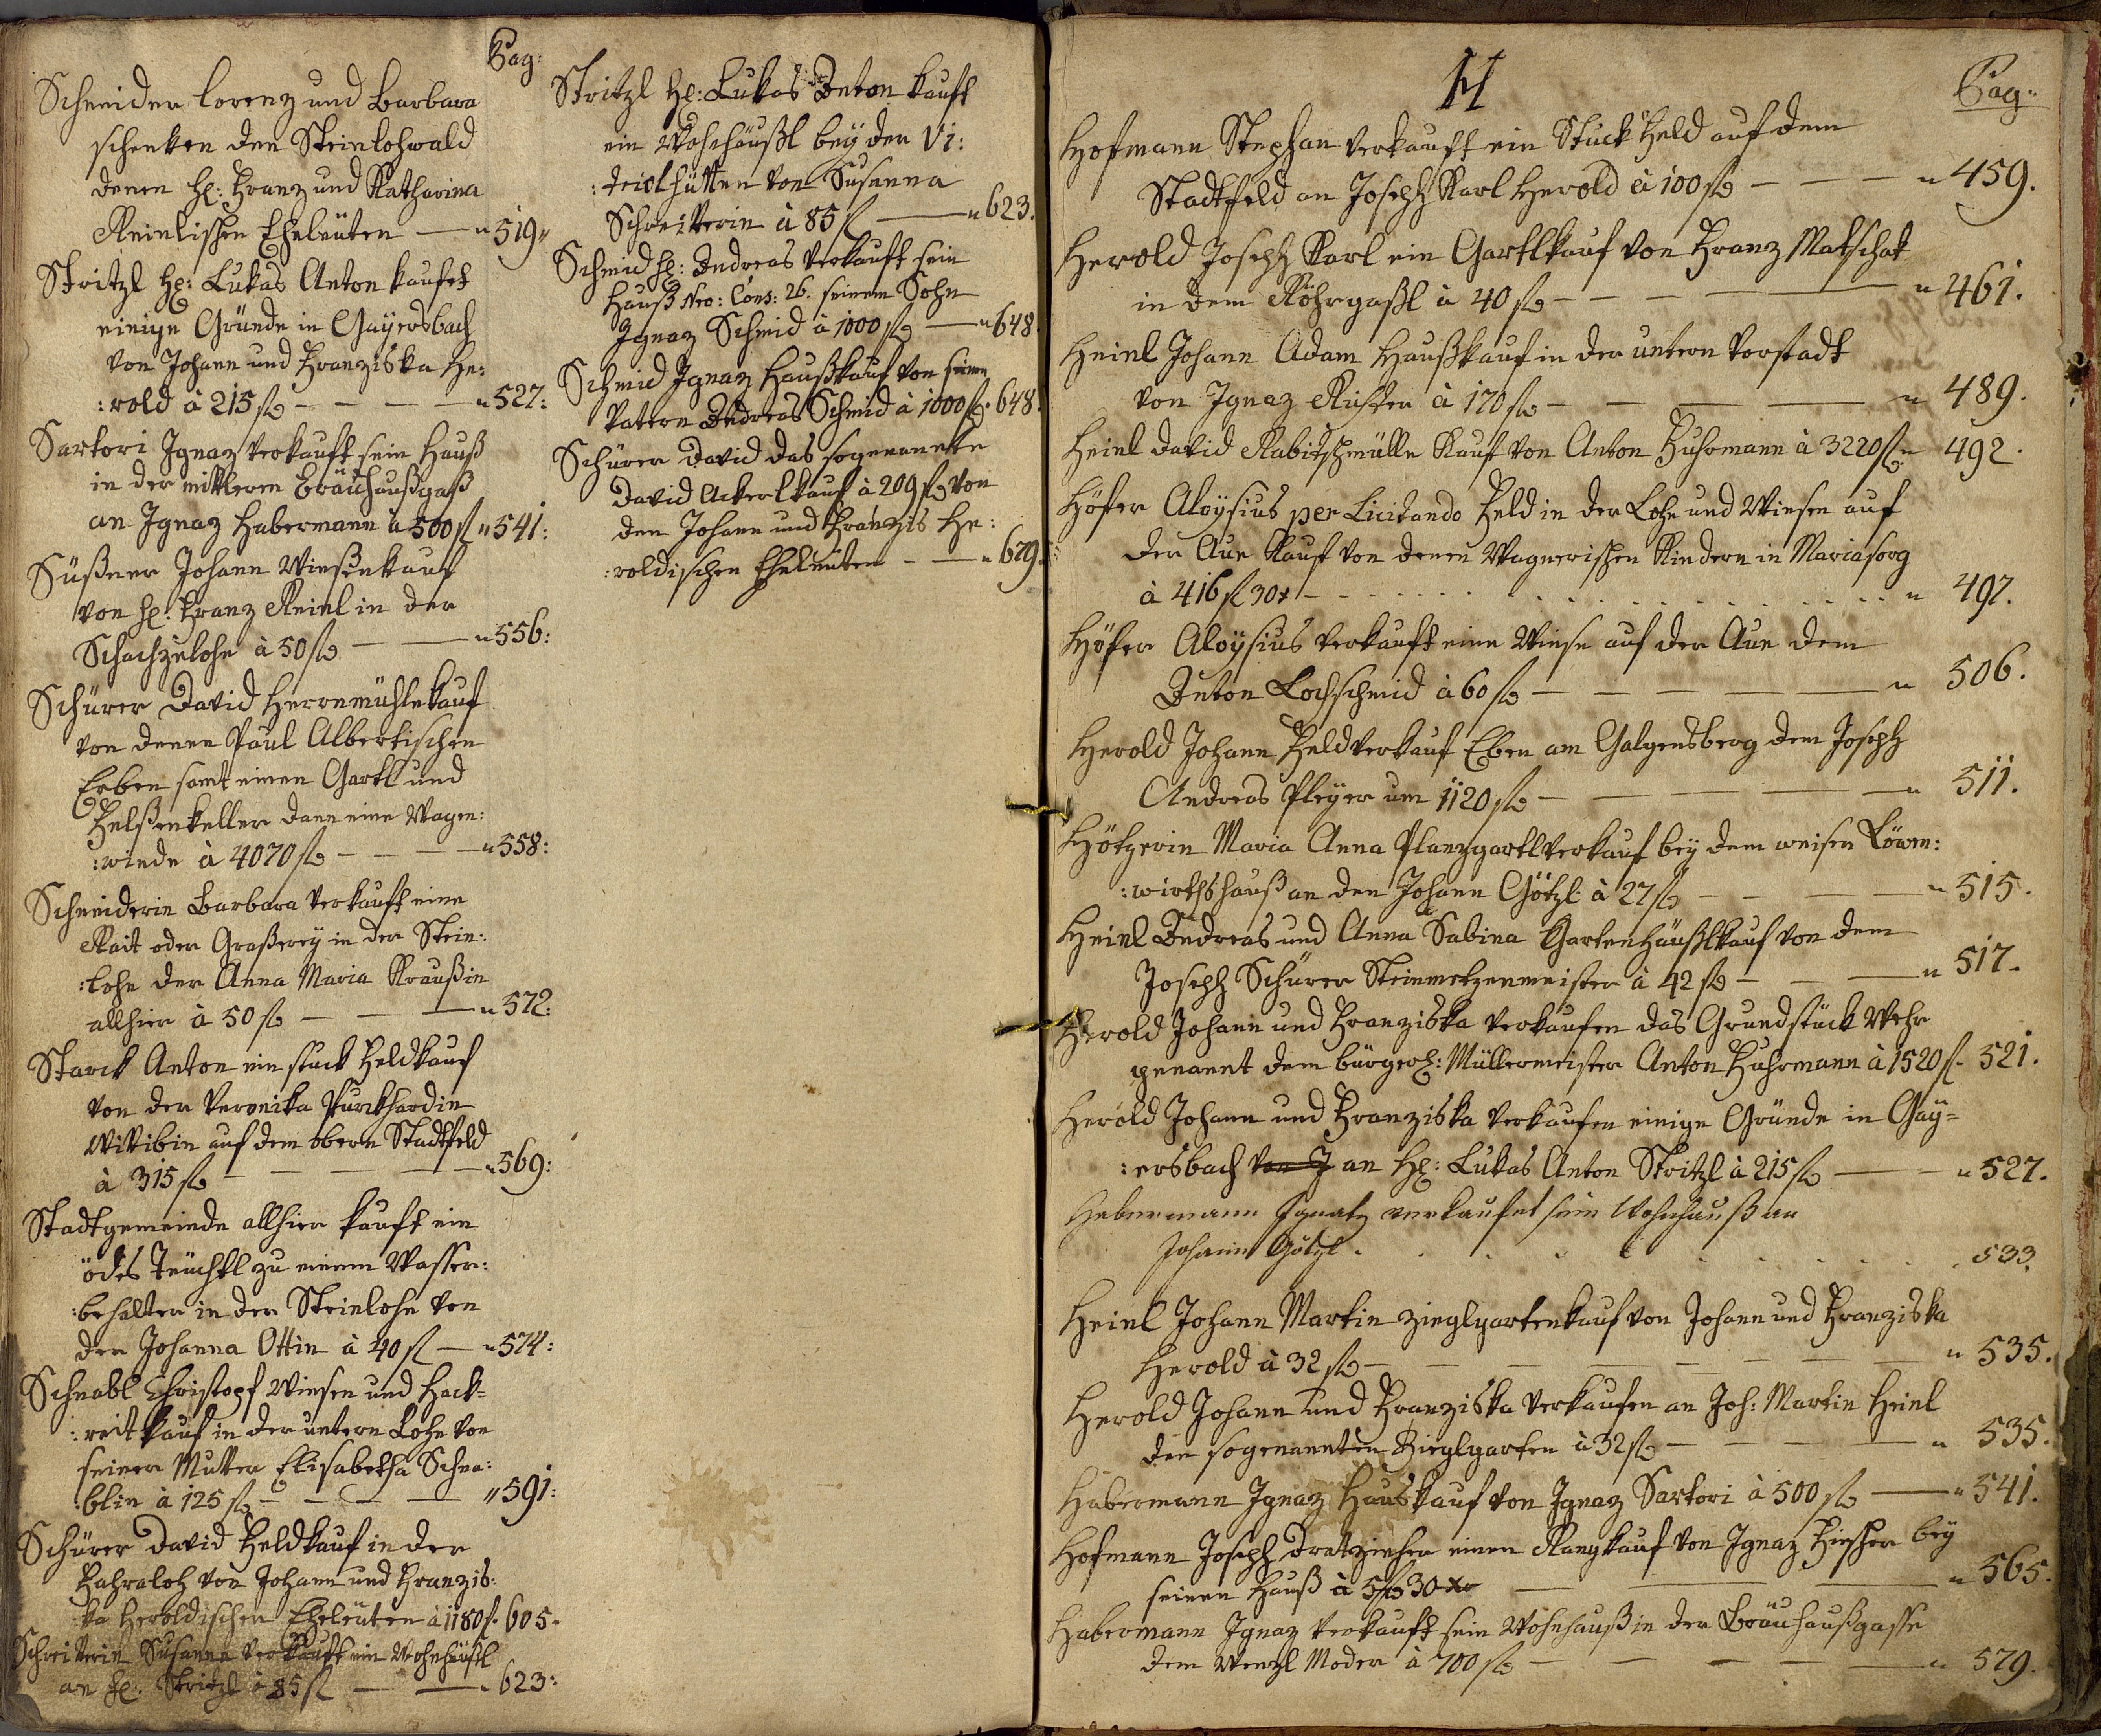 Pag:
Schneider Lorenz und Barbara
schenken den Steinlohwald
denen H: Franz und Katharina
Reinlischen Eheleüten — " 519 "
Stritzl H: Lukas Anton kaufet
einige Gründe in Gayersbach
von Johann und Franziska He:
:rold à 215 fl — — — " 527:
Sartori Ignaz verkauft sein Hauß
in der mittleren Bräuhaußgaß
an Ignaz Habermann à 500 fl " 541:
Süßner Johann Wiesenkauf
von H: Franz Reinl in der
Schachzelohe à 50 fl — — " 556:
Schürer David Herrnmühlkauf
von denen Paul Albertischen
Erben samt einen Gartl und
Felßenkeller dann eine Wagen:
:winde à 4070 fl — — — " 558:
Schneiderin Barbara verkauft eine
Rait oder Graßerey in der Stein:
:lohe der Anna Maria Kraußin
allhier à 50 fl — — — " 572:
Starck Anton ein stuck Feldkauf
von der Veronika Purckhardin
Wittibin auf dem obern Stadtfeld
à 315 fl — — — " 569:
Stadtgemeinde allhier kauft ein
ödes Teüchtl zu einem Wasser:
:behalter in der Steinlohe von
der Johanna Ottin à 40 fl — " 574:
Schnabl Christopf Wiesen und Hack=
:reit kauf in der untern Lohe von
seiner Mutter Elisabetha Schna:
:blin à 125 fl — — — " 591:
Schürer David Feldkauf in der
Fahraloh von Johann und Franzis:
ka Heroldischen Eheleüten à 1180 fl. 605.
Schreitterin Susanna verkauft ein Wohnhäußl
an H: Stritzl à 85 fl — — " 623:
Stritzl H: Lukas Anton kauft
ein Wohnhäußl bey der Vi:
:triolhütten von Susanna
Schreitterin à 85 fl — " 623.
Schmid H: Andreas verkauft sein
Hauß Nro: Cons: 26. seinem Sohn
Ignaz Schmid à 1000 fl — " 648.
Schmid Ignaz Haußkauf von seinem
Vattern Andreas Schmid à 1000 fl. 648.
Schürer David das sogenannte
David Ackerl kauf à 209 fl von
den Johann und Franzis He:
:roldischen Eheleuten — — " 679.
H
Pag:
Hofmann Stephan verkauft ein Stuck Feld auf dem
Stadtfeld an Joseph Karl Herold à 100 fl — — — " 459.
Herold Joseph Karl ein Gartlkauf von Franz Matschat
in dem Röhrgaßl à 40 fl — — — — " 461.
Heinl Johann Adam Haußkauf in der untern Vorstadt
von Ignaz à 170 fl — — — — " 489.
Heinl David Rabitschmülle Kauf von Anton Fuhrmann à 3220 fl " 492.
Höfer Aloÿsius per Licitando Feld in der Lohe und Wiesen auf
der Aue Kauf von denen Wagnerischen Kindern in Mariasorg
à 416 fl 30 x - - - - - " 497.
Höfer Aloÿsius verkauft eine Wiese auf der Aue dem
Anton Lochschmid à 60 fl — — — — " 506.
Herold Johann Feldverkauf Eben am Galgensberg dem Joseph
Andreas Pleyer um 1120 fl — — — " 511.
Hötzerin Maria Anna Planzgartlverkauf bey dem weisen Löwen:
:wirthshauß an den Johann Götzl à 27 fl — — — " 515.
Heinl Andreas und Anna Sabina Gartenhäußlkauf von dem
Joseph Schürer Steinmetzenmeister à 42 fl — — — " 517.
Herold Johann und Franziska verkaufen das Grundstück Wehr
genannt dem bürgerl: Müllermeister Anton Fuhrmann à 1520 fl. 521.
Herold Johann und Franziska verkaufen einige Gründe in Gay=
:ersbach von J an H: Lukas Anton Stritzl à 215 fl — — " 527.
Habermann Ignatz verkaufet sein Wohnhauß an
Johann Götzl . . . . . . 533.
Heinl Johann Martin Zieglgartenkauf von Johann und Franziska
Herold à 32 fl — — — — — " 535.
Herold Johann und Franziska verkaufen an Joh: Martin Heinl
den sogenannten Zieglgarten à 32 fl — — — " 535.
Habermann Ignaz Hauskauf von Ignaz Sartori à 500 fl — " 541.
Hofmann Joseph Dratzieher einen Rangkauf von Ignaz bey
seinem Hauß à 5 fl 30 xr — — — " 565.
Habermann Ignaz verkauft sein Wohnhauß in der Bräuhaußgasse
dem Wenzl Moder à 700 fl — — — — " 579.